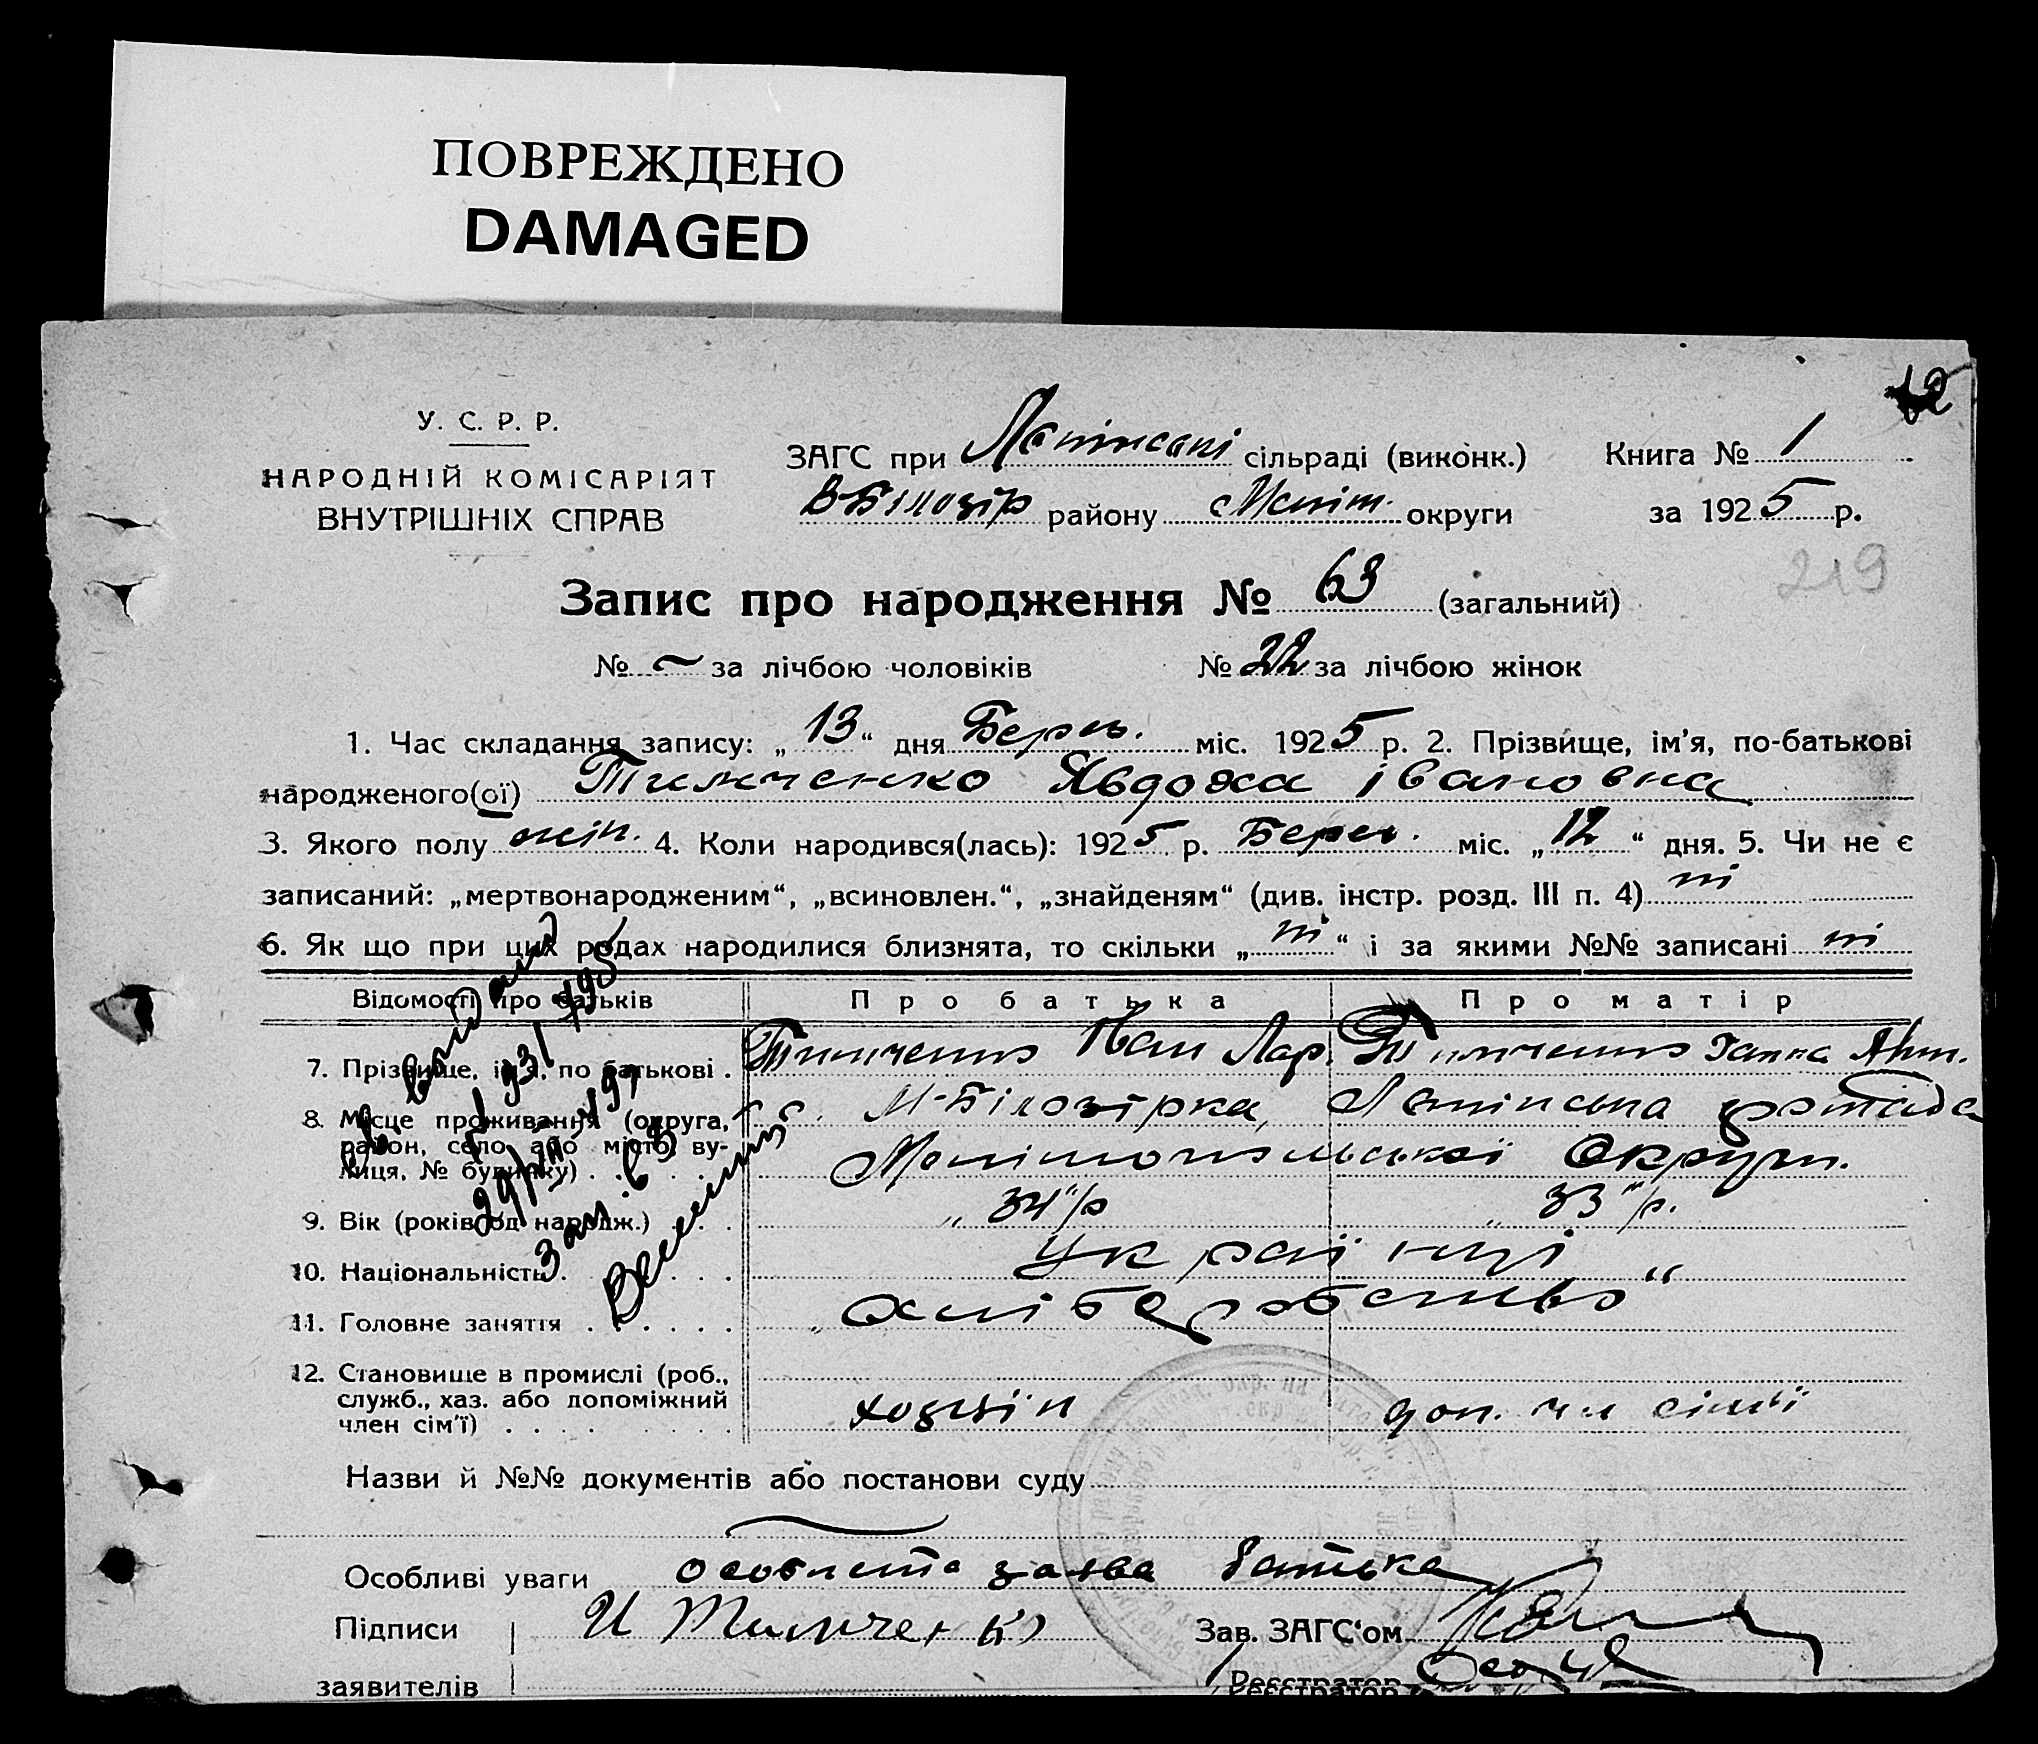 ПОВРЕЖДЕНО
DAMAGED
12
У. С. Р. Р.
НАРОДНІЙ КОМІСАРІЯТ
ВНУТРІШНІХ СПРАВ
ЗАГС при сільраді (виконк.) Книга № 1
В-Білозір району Меліт. округи за 1925 р.
219
Запис про народження № 63 (загальний)
№ — за лічбою чоловіків № 22 за лічбою жінок
1. Час складання запису: „13“ дня Берез. міс. 1925 р. 2. Прізвище, ім’я, по-батькові
народженого(ої) Тимченко Явдоха Івановна
3. Якого полу жін. 4. Коли народився(лась): 1925 р. Берез. міс. „12“ дня. 5. Чи не є
записаний: „мертвонародженим“, „всиновлен.“, „знайденям“ (див. інстр. розд. III п. 4) ні
6. Як що при цих родах народилися близнята, то скільки „ні“ і за якими №№ записані ні
Відомості про батьків Про батька Про матір
7. Прізвище, ім’я, по батькові . Тимченко Іван Лар. Тимченко Ганна Ант.
8. Місце проживання (округа, с. М-Білозірка, громада
район, село або місто, ву-
лиця, № будинку) . . . . Мелітопольської Округи.
9. Вік (років од народж.) . . . „34“/р „33“/р.
10. Національність . . . . . Українці
11. Головне заняття . . . . . . „хліборобство“
12. Становище в промислі (роб.,
служб., хаз. або допоміжний
член сім’ї) . . . . . . . . хозяїн доп. чл сім’ї
Назви й №№ документів або постанови суду
Особливі уваги особиста заява батька
Підписи И Тимченко Зав. ЗАГС‘ом
заявителів Реєстратор